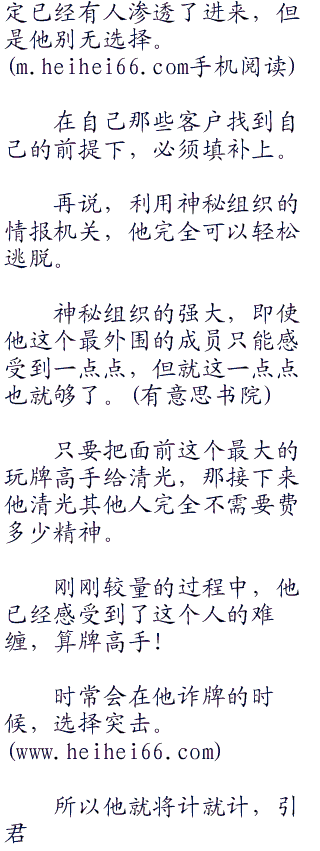 定已经有人渗透了进来，但
是他别无选择。
(m.heihei66.com手机阅读)
在自己那些客户找到自
己的前提下，必须填补上。
再说，利用神秘组织的
情报机关，他完全可以轻松
逃脱。
神秘组织的强大，即使
他这个最外围的成员只能感
受到一点点，但就这一点点
也就够了。(有意思书院)
只要把面前这个最大的
玩牌高手给清光，那接下来
他清光其他人完全不需要费
多少精神。
刚刚较量的过程中，他
已经感受到了这个人的难
缠，算牌高手！
时常会在他诈牌的时
候，选择突击。
(www.heihei66.com)
所以他就将计就计，引
君